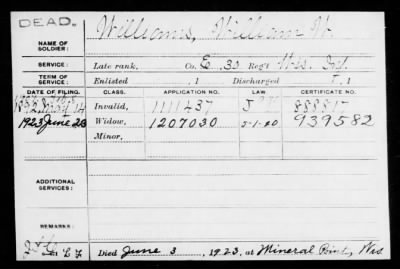 DEAD.
NAME OF SOLDIER: Williams, William W.
SERVICE: Late rank, Co. E. 30 Reg't Wis. Inf.
TERM OF SERVICE: Enlisted , 1 Discharged , 1
DATE OF FILING. CLASS. APPLICATION NO. LAW. CERTIFICATE NO.
Invalid, 1111437 888817
1923 June 23 Widow, 1207030 5-1-20 939582
Minor,
ADDITIONAL SERVICES:
REMARKS:
Died June 3, 1923, at Mineral Point, Wis